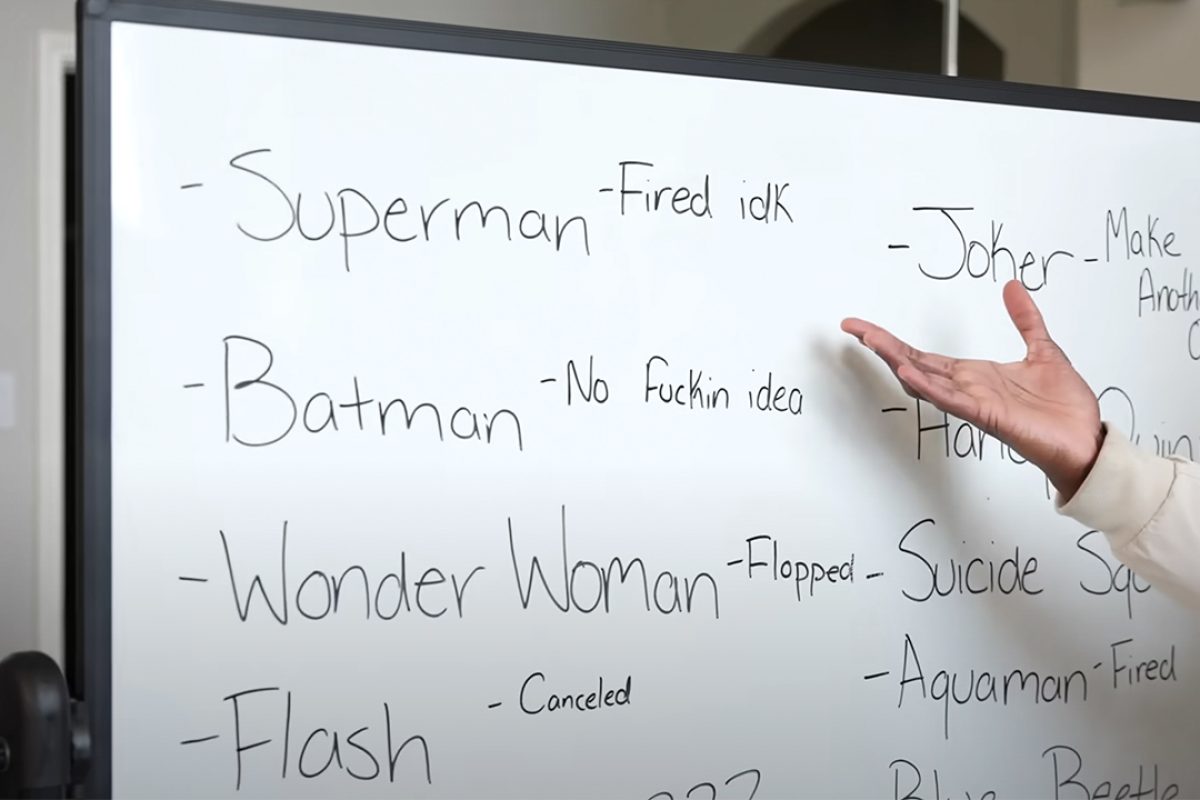 - Superman - Fired idk
- Batman - No Fuckin idea
- Wonder Woman - Flopped
- Flash - Canceled
???
- Joker - Make
Anoth
- Suicide
- Aquaman - Fired
Blue Beetle